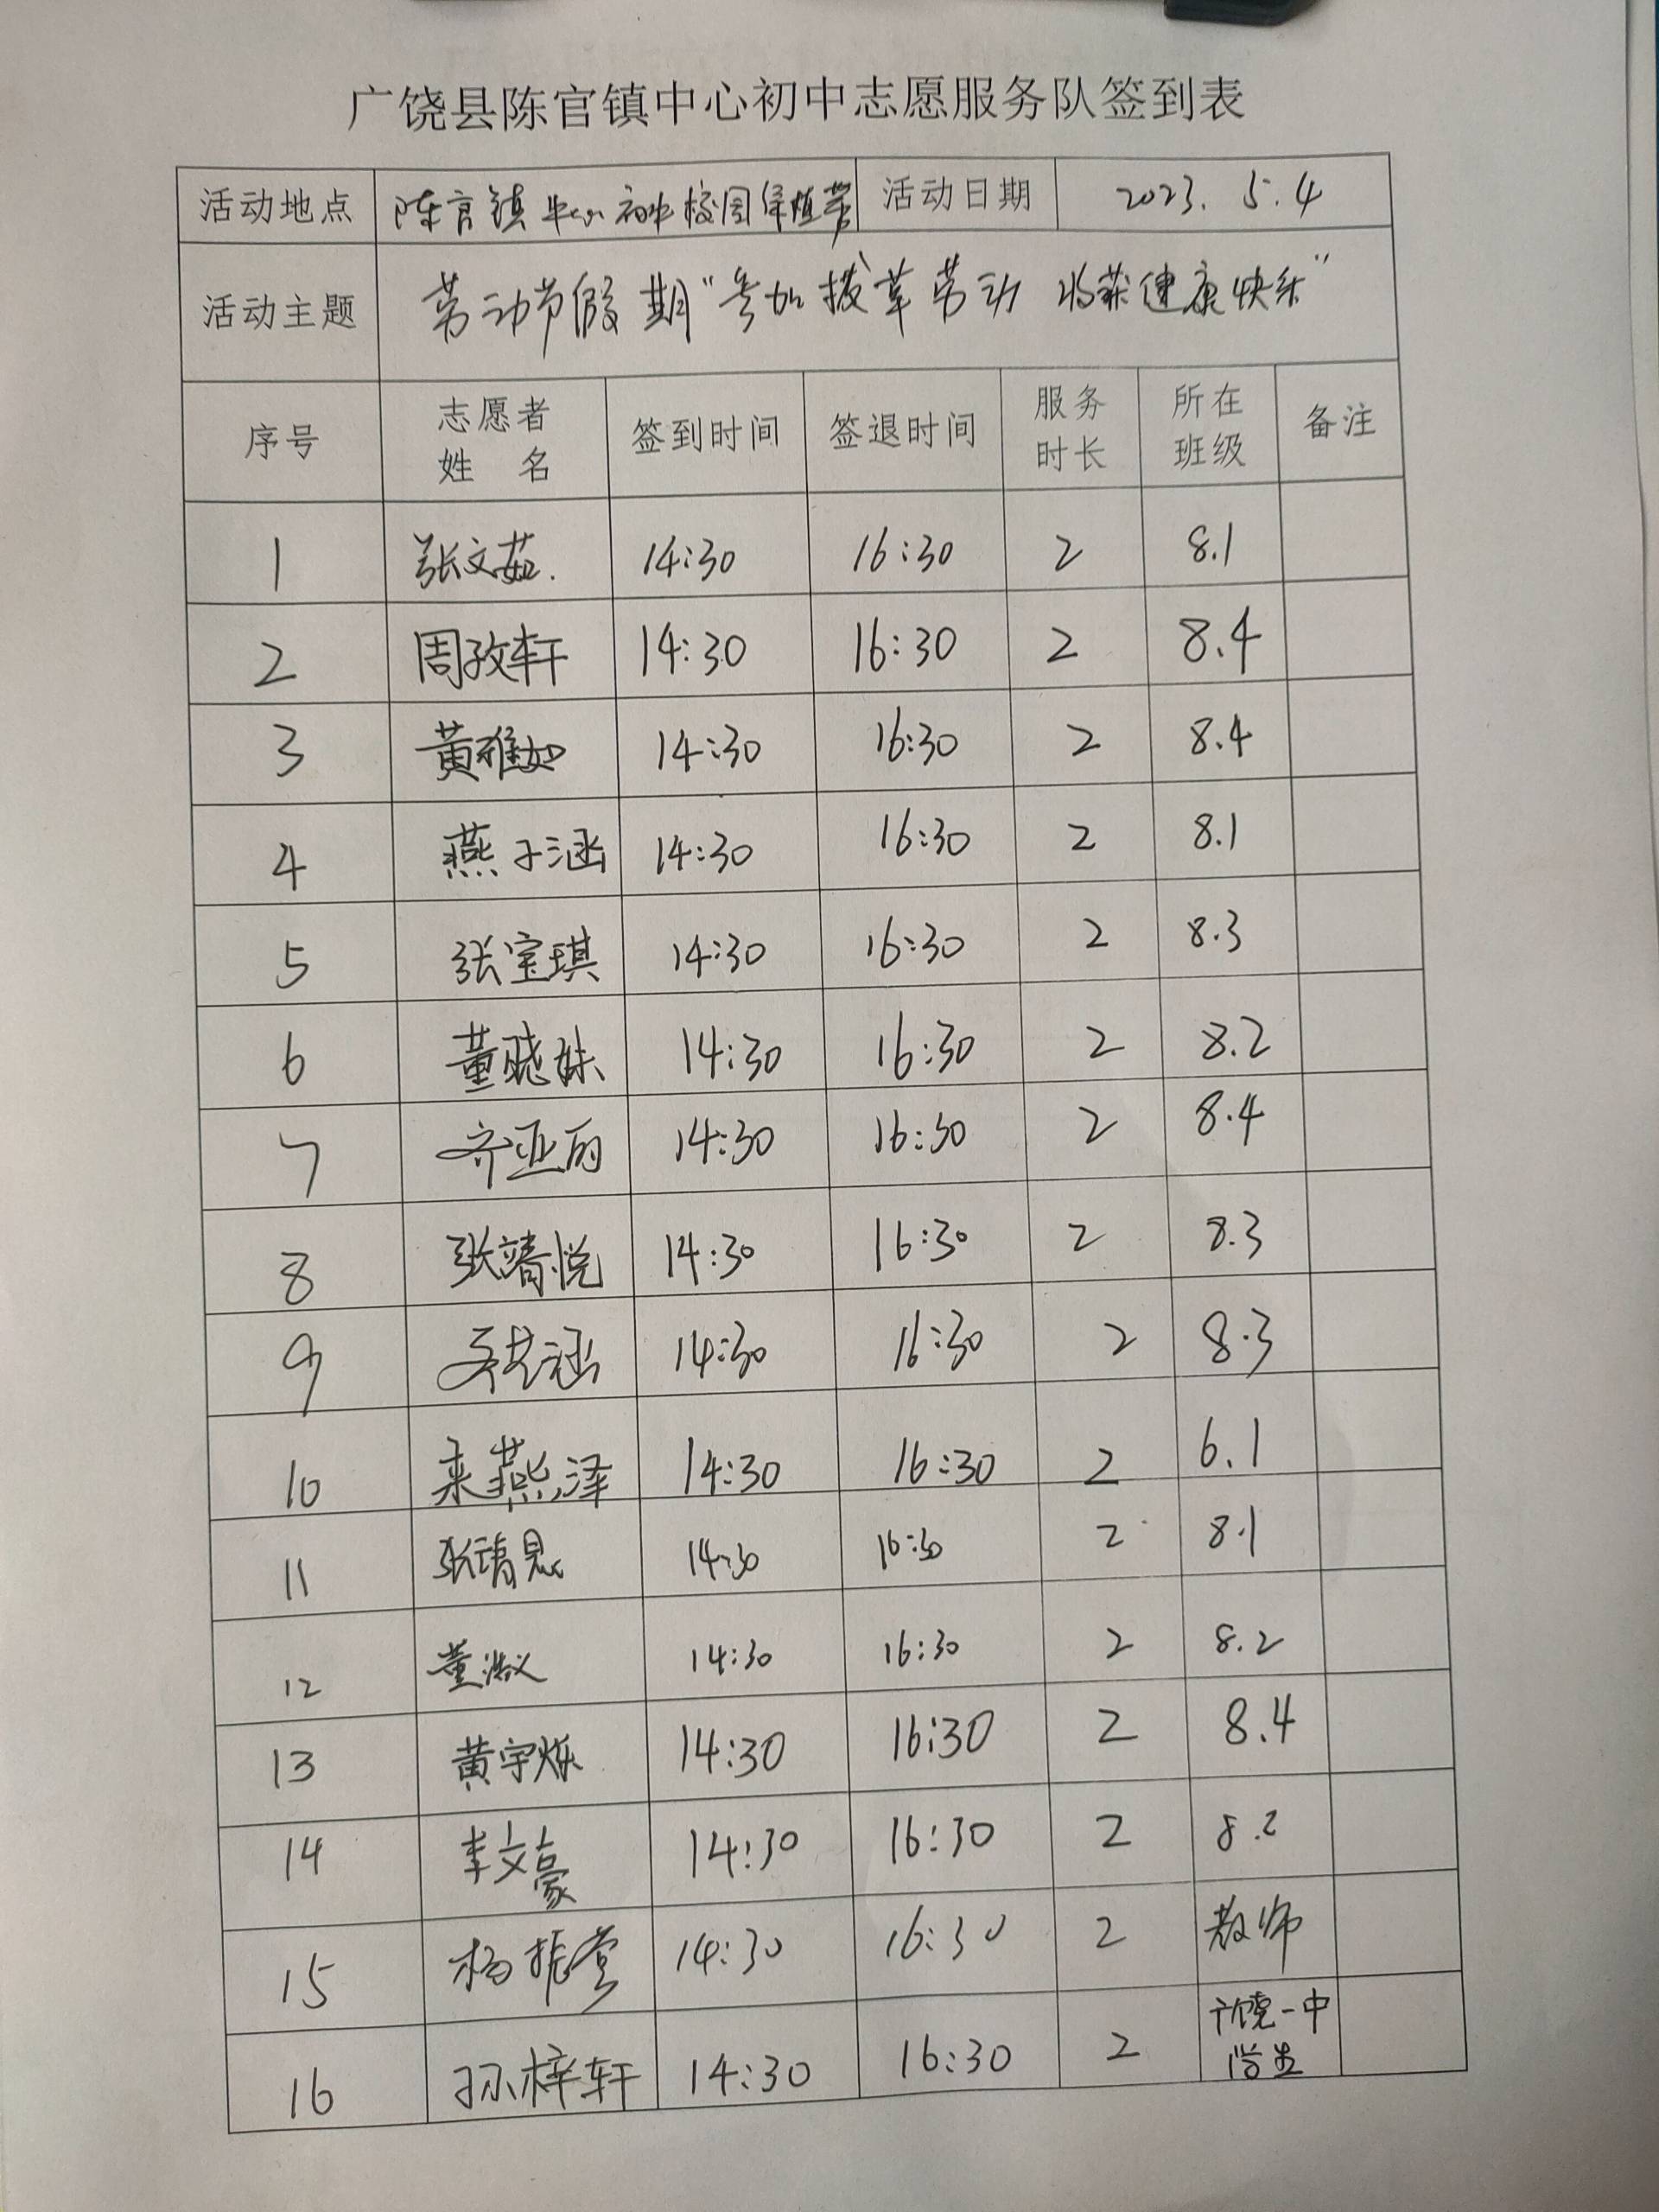 广饶县陈官镇中心初中志愿服务队签到表
活动地点 陈官镇中心初中校园 活动日期 2023.5.4
活动主题 劳动节假期“参加拔草劳动 收获健康快乐”
序号 志愿者姓名 签到时间 签退时间 服务时长 所在班级 备注
1 张文茹. 14:30 16:30 2 8.1
2 周孜轩 14:30 16:30 2 8.4
3 黄雅如 14:30 16:30 2 8.4
4 燕子涵 14:30 16:30 2 8.1
5 张宝琪 14:30 16:30 2 8.3
6 董晓姝 14:30 16:30 2 8.2
7 齐亚丽 14:30 16:30 2 8.4
8 张靖悦 14:30 16:30 2 8.3
9 涵 14:30 16:30 2 8.3
10 来燕泽 14:30 16:30 2 6.1
11 张靖恩 14:30 16:30 2 8.1
12 董 14:30 16:30 2 8.2
13 黄宇烁 14:30 16:30 2 8.4
14 李文豪 14:30 16:30 2 8.2
15 杨振堂 14:30 16:30 2 教师
16 孙梓轩 14:30 16:30 2 广饶一中学生